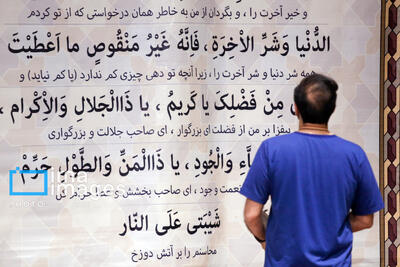 و خیر آخرت را ، و بگردان از من به خاطر همان درخواستی که از تو کردم
الدُّنْیا وَشَرِّ الْاخِرَةِ ، فَاِنَّهُ غَیْرُ مَنْقُوصٍ ما اَعْطَیْتَ
همه شر دنیا و شر آخرت را ، زیرا آنچه تو دهی چیزی کم ندارد (یا کم نیاید) و
مِنْ فَضْلِکَ یا کَریمُ ، یا ذَاالْجَلالِ وَالْاِکْرامِ ،
بیفزا بر من از فضلت ای بزرگوار ، ای صاحب جلالت و بزرگواری
وَالْجُودِ ، یا ذَاالْمَنِّ وَالطَّوْلِ حَرِّمْ
نعمت و جود ، ای صاحب بخشش و
شَیْبَتی عَلَی النّارِ
محاسنم را بر آتش دوزخ